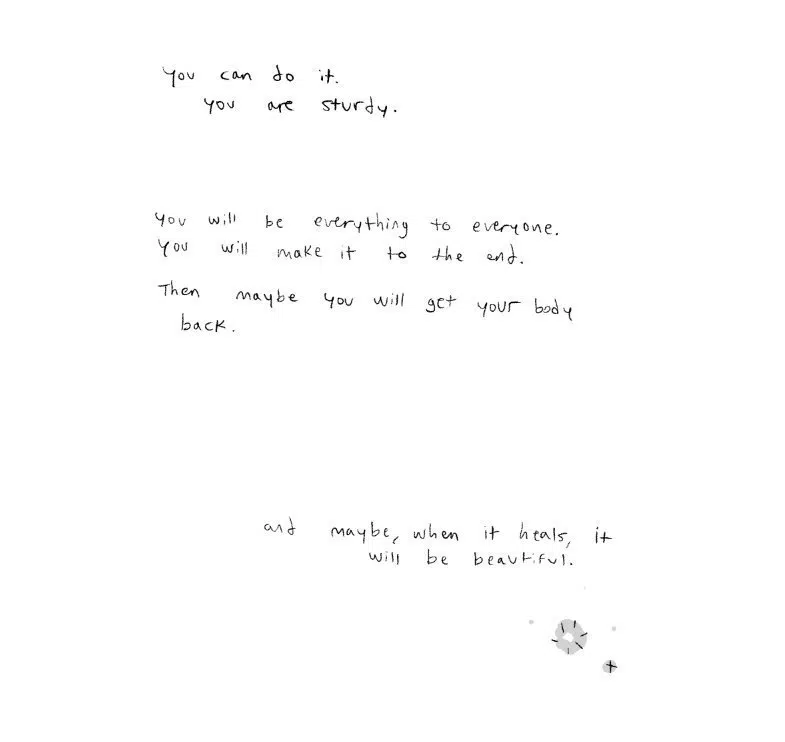 you can do it.
you are sturdy.
you will be everything to everyone.
you will make it to the end.
Then maybe you will get your body
back.
and maybe, when it heals, it
will be beautiful.